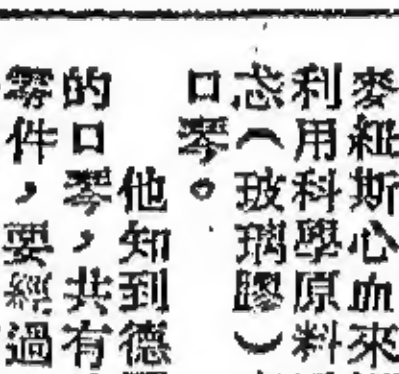 麥紐斯心血來
利用科學原料
忞（玻璃膠）
口琴。
他知到德
的口琴，共有
零件，要經過